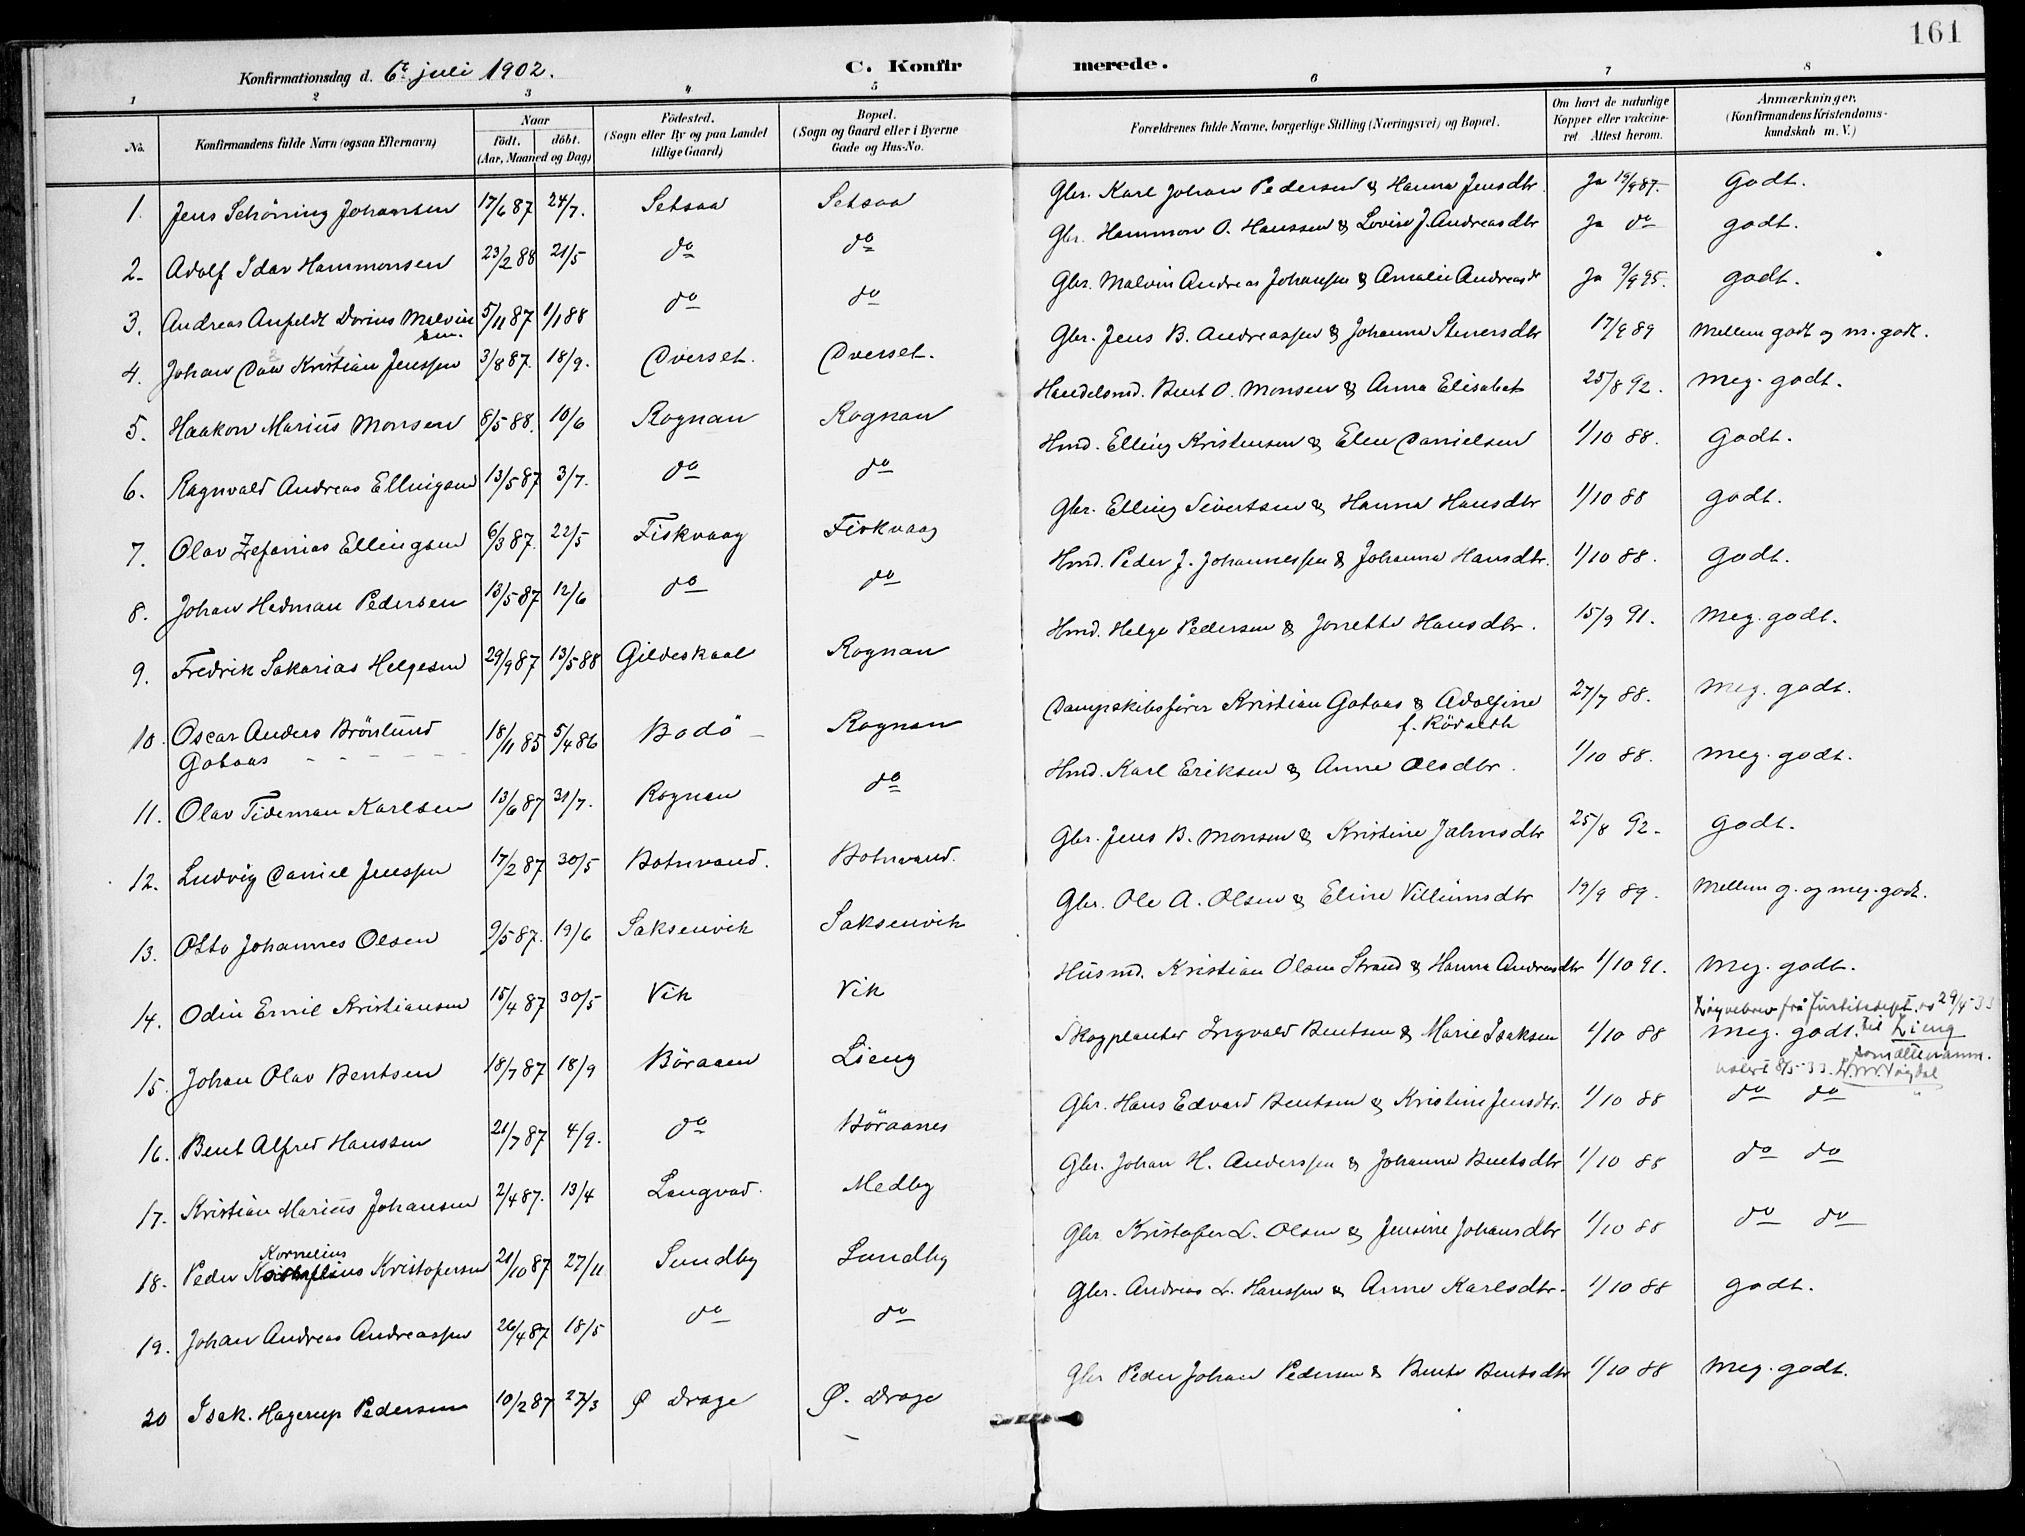 161
Konfirmationsdag d. 6te juli 1902.
C. Konfirmerede.
1 2 3 4 5 6 7 8
No. | Konfirmandens fulde Navn (ogsaa Efternavn) | Naar födt. döbt. (Aar, Maaned og Dag) | Födested. (Sogn eller By og paa Landet tillige Gaard) | Bopæl. (Sogn og Gaard eller i Byerne Gade og Hus-No. | Forældrenes fulde Navne, borgerlige Stilling (Næringsvei) og Bopæl. | Om havt de naturlige Kopper eller vakcineret. Attest herom. | Anmærkninger. (Konfirmandens Kristendomskundskab m. V.)
1. Jens Schöning Johansen 17/6 87 24/7. Setsaa Setsaa Gbr. Karl Johan Pedersen & Hanna Jensdtr. Ja 19/9 87. Godt.
2. Adolf Idar Hammonsen 23/2 88 21/5 do do Gbr. Hammon O. Hanssen & Lovise J. Andreasdtr Ja do godt.
3. Andreas Anfeldt Dorius Malvinsen. 5/11 87 1/1 88 do do Gbr. Malvin Andreas Johansen & Amalie Andreasdr Ja 9/9 95. godt.
4. Johan Dan Kristian Jenssen 3/8 87. 18/9. Dverset. Dverset. Gbr. Jens B. Andreassen & Johanna Stenersdtr 17/9 89 Mellem godt og m. godt.
5. Haakon Marius Monsen 8/5 88. 10/6 Rognan Rognan Handelsmd. Bent O. Monsen & Anna Elisabet 25/8 92. Meg. godt.
6. Ragnvald Andreas Ellingsen 13/5 87 3/7. do do Hmd. Elling Kristensen & Elen Danielsen 1/10 88. Godt.
7. Olav Zefanias Ellingsen 6/3 87. 22/5 Fiskvaag Fiskvaag Gbr. Elling Sivertsen & Hanna Hansdtr 1/10 88 Godt.
8. Johan Hedman Pedersen 13/5 87 12/6 do do Hmd. Peder J. Johannessen & Johanna Hansdtr. 1/10 88. Godt.
9. Fredrik Sakarias Helgesen 29/9 87 13/5 88 Gildeskaal Rognan Hmd. Helge Pedersen & Jonette Hansdtr. 15/9 91. Meg. godt.
10. Oscar Anders Brönlund Gataas 18/11 85 5/4 86 Bodö Rognan Dampskibsförer Kristian Gataas & Adolfine f. 27/7 88. Meg. godt.
11. Olav Tideman Karlsen 13/6 87 31/7. Rognan do Hmd. Karl Eriksen & Anne Olsdtr. 1/10 88. Meg. godt.
12. Ludvig Daniel Jenssen 17/2 87 30/5 Botnvand. Botnvand. Gbr. Jens B. Monsen & Kristine Jahnsdtr 25/8 92. Godt.
13. Otto Johannes Olsen 9/5 87. 19/6 Saksenvik Saksenvik Gbr. Ole A. Olsen & Eline Villumsdtr 19/9 89. Mellem g. og meg. godt.
14. Odin Emil Kristiansen 15/4 87 30/5 Vik Vik Husmd. Kristian Olsen Strand & Hanna Andreasdtr 1/10 91. Meg. godt.
15. Johan Olav Bentsen 18/7 87 18/9 Böraaen Lieng Skogplanter Ingvald Bentsen & Marie Isaksen 1/10 88 Meg. godt. Löyvebrev frå Justitsdept. av 29/4-33 til Lieng som ættenamn. notert 8/5-33.
16. Bent Alfred Hanssen 21/7 87 4/9. do Böraanes Gbr. Hans Edvard Bentsen & Kristine Jensdtr. 1/10 88 do do
17. Kristian Marius Johansen 2/4 87. 13/4 Langvad. Medby Gbr. Johan H. Anderssen & Johanna Bentsdtr 1/10 88 do do
18. Peder Kornelius Kristofersen 21/10 87 27/11 Sundby Sundby Gbr. Kristofer L. Olsen & Jensine Johansdtr 1/10 88 do do
19. Johan Andreas Andreassen 26/4 87 18/5 do do Gbr. Andreas L. Hanssen & Anne Karlsdtr. 1/10 88 godt.
20 Isak. Hagerup Pedersen 10/2 87 27/3 Ø Drage Ø. Drage Gbr Peder Johan Pedersen & Bente Bentsdtr 1/10 88 Meg. godt.